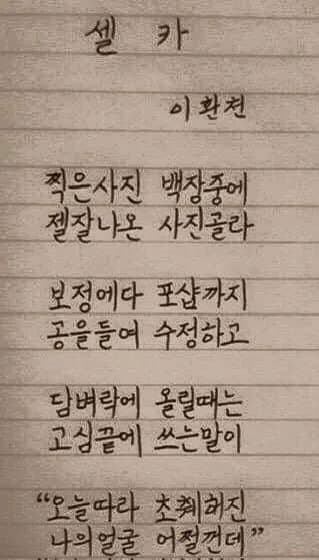 셀 카
이환천
찍은사진 백장중에
젤잘나온 사진골라
보정에다 포샵까지
공을들여 수정하고
담벼락에 올릴때는
고심끝에 쓰는말이
“오늘따라 초췌해진
나의얼굴 어쩔껀데”